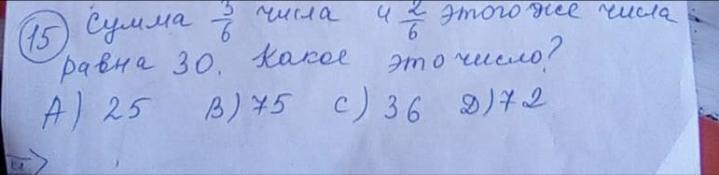 15) Сумма 3/6 числа и 2/6 этого же числа
равна 30. Какое это число?
A) 25 B) 75 C) 36 D) 72